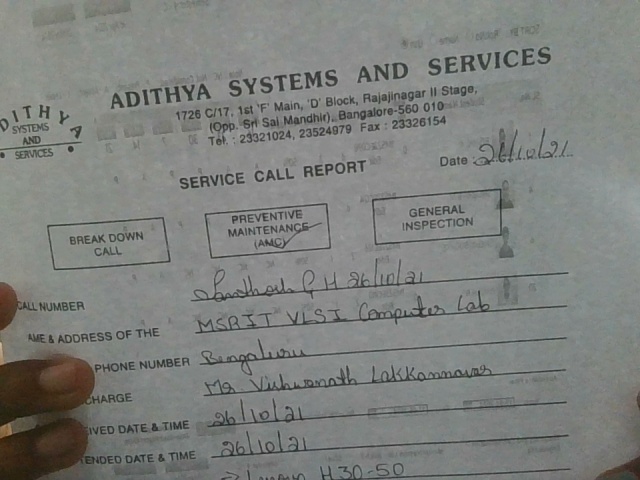 ADITHYA SYSTEMS AND SERVICES
DITHYA
SYSTEMS
AND
SERVICES
1726 C/17, 1st 'F' Main, 'D' Block, Rajajinagar II Stage,
(Opp. Sri Sai Mandhir), Bangalore-560 010
Tel. : 23321024, 23524979 Fax : 23326154
SERVICE CALL REPORT
Date 26/10/21
BREAK DOWN
CALL
PREVENTIVE
MAINTENANCE
(AMC)
GENERAL
INSPECTION
CALL NUMBER G H 26/10/21
AME & ADDRESS OF THE MSRIT VLSI Computer Lab
PHONE NUMBER Bengaluru
CHARGE Mr Vishwanath Lakkannavar
IVED DATE & TIME 26/10/21
TENDED DATE & TIME 26/10/21
H30-50